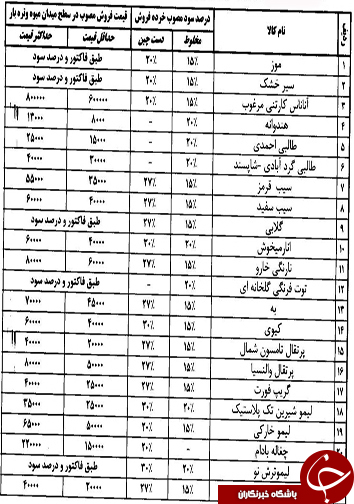 ردیف نام کالا درصد سود مصوب خرده فروش قیمت فروش مصوب در سطح میدان میوه وتره بار
مخلوط دست چین حداقل قیمت حداکثر قیمت
۱ موز ۱۵٪ ۲۰٪ طبق فاکتور و درصد سود
۲ سیر خشک ۱۵٪ ۲۰٪ طبق فاکتور و درصد سود
۳ آناناس کارتنی مرغوب ۱۵٪ ۲۰٪ ۶۰۰۰۰۰ ۸۰۰۰۰۰
۴ هندوانه ۲۰٪ - ۸۰۰۰ ۱۳۰۰۰
۵ طالبی احمدی ۲۰٪ - ۱۵۰۰۰ ۲۵۰۰۰
۶ طالبی گرد آبادی -شاپسند ۲۰٪ - ۲۰۰۰۰ ۴۰۰۰۰
۷ سیب قرمز ۱۵٪ ۲۷٪ ۲۵۰۰۰ ۵۵۰۰۰
۸ سیب سفید ۱۵٪ ۲۷٪ ۴۰۰۰۰ ۶۰۰۰۰
۹ گلابی ۱۵٪ ۲۷٪ طبق فاکتور و درصد سود
۱۰ انارمیخوش ۲۰٪ ۳۰٪ ۴۰۰۰۰ ۶۰۰۰۰
۱۱ نارنگی خارو ۱۵٪ ۲۷٪ ۶۰۰۰۰ ۸۰۰۰۰
۱۲ توت فرنگی گلخانه ای ۲۰٪ - طبق فاکتور و درصد سود
۱۳ به ۱۵٪ ۲۷٪ ۴۵۰۰۰ ۷۰۰۰۰
۱۴ کیوی ۱۵٪ ۳۰٪ ۴۰۰۰۰ ۶۰۰۰۰
۱۵ پرتقال تامسون شمال ۱۵٪ ۲۷٪ ۲۰۰۰۰ ۴۰۰۰۰
۱۶ پرتقال والنسیا ۱۵٪ ۲۷٪ ۵۰۰۰۰ ۸۰۰۰۰
۱۷ گریپ فورت ۱۵٪ ۲۷٪ ۲۵۰۰۰ ۴۰۰۰۰
۱۸ لیمو شیرین تک پلاستیک ۲۰٪ ۳۰٪ ۲۵۰۰۰ ۳۵۰۰۰
۱۹ لیمو خارکی ۱۵٪ ۲۰٪ ۵۰۰۰۰ ۶۵۰۰۰
۲۰ چغاله بادام ۲۰٪ - ۱۵۰۰۰۰ ۲۲۰۰۰۰
لیموترش نو ۲۰٪ ۳۰٪ طبق فاکتور و درصد سود
۱۵٪ ۲۷٪ ۲۰۰۰۰ ۴۰۰۰۰
باشگاه خبرنگاران